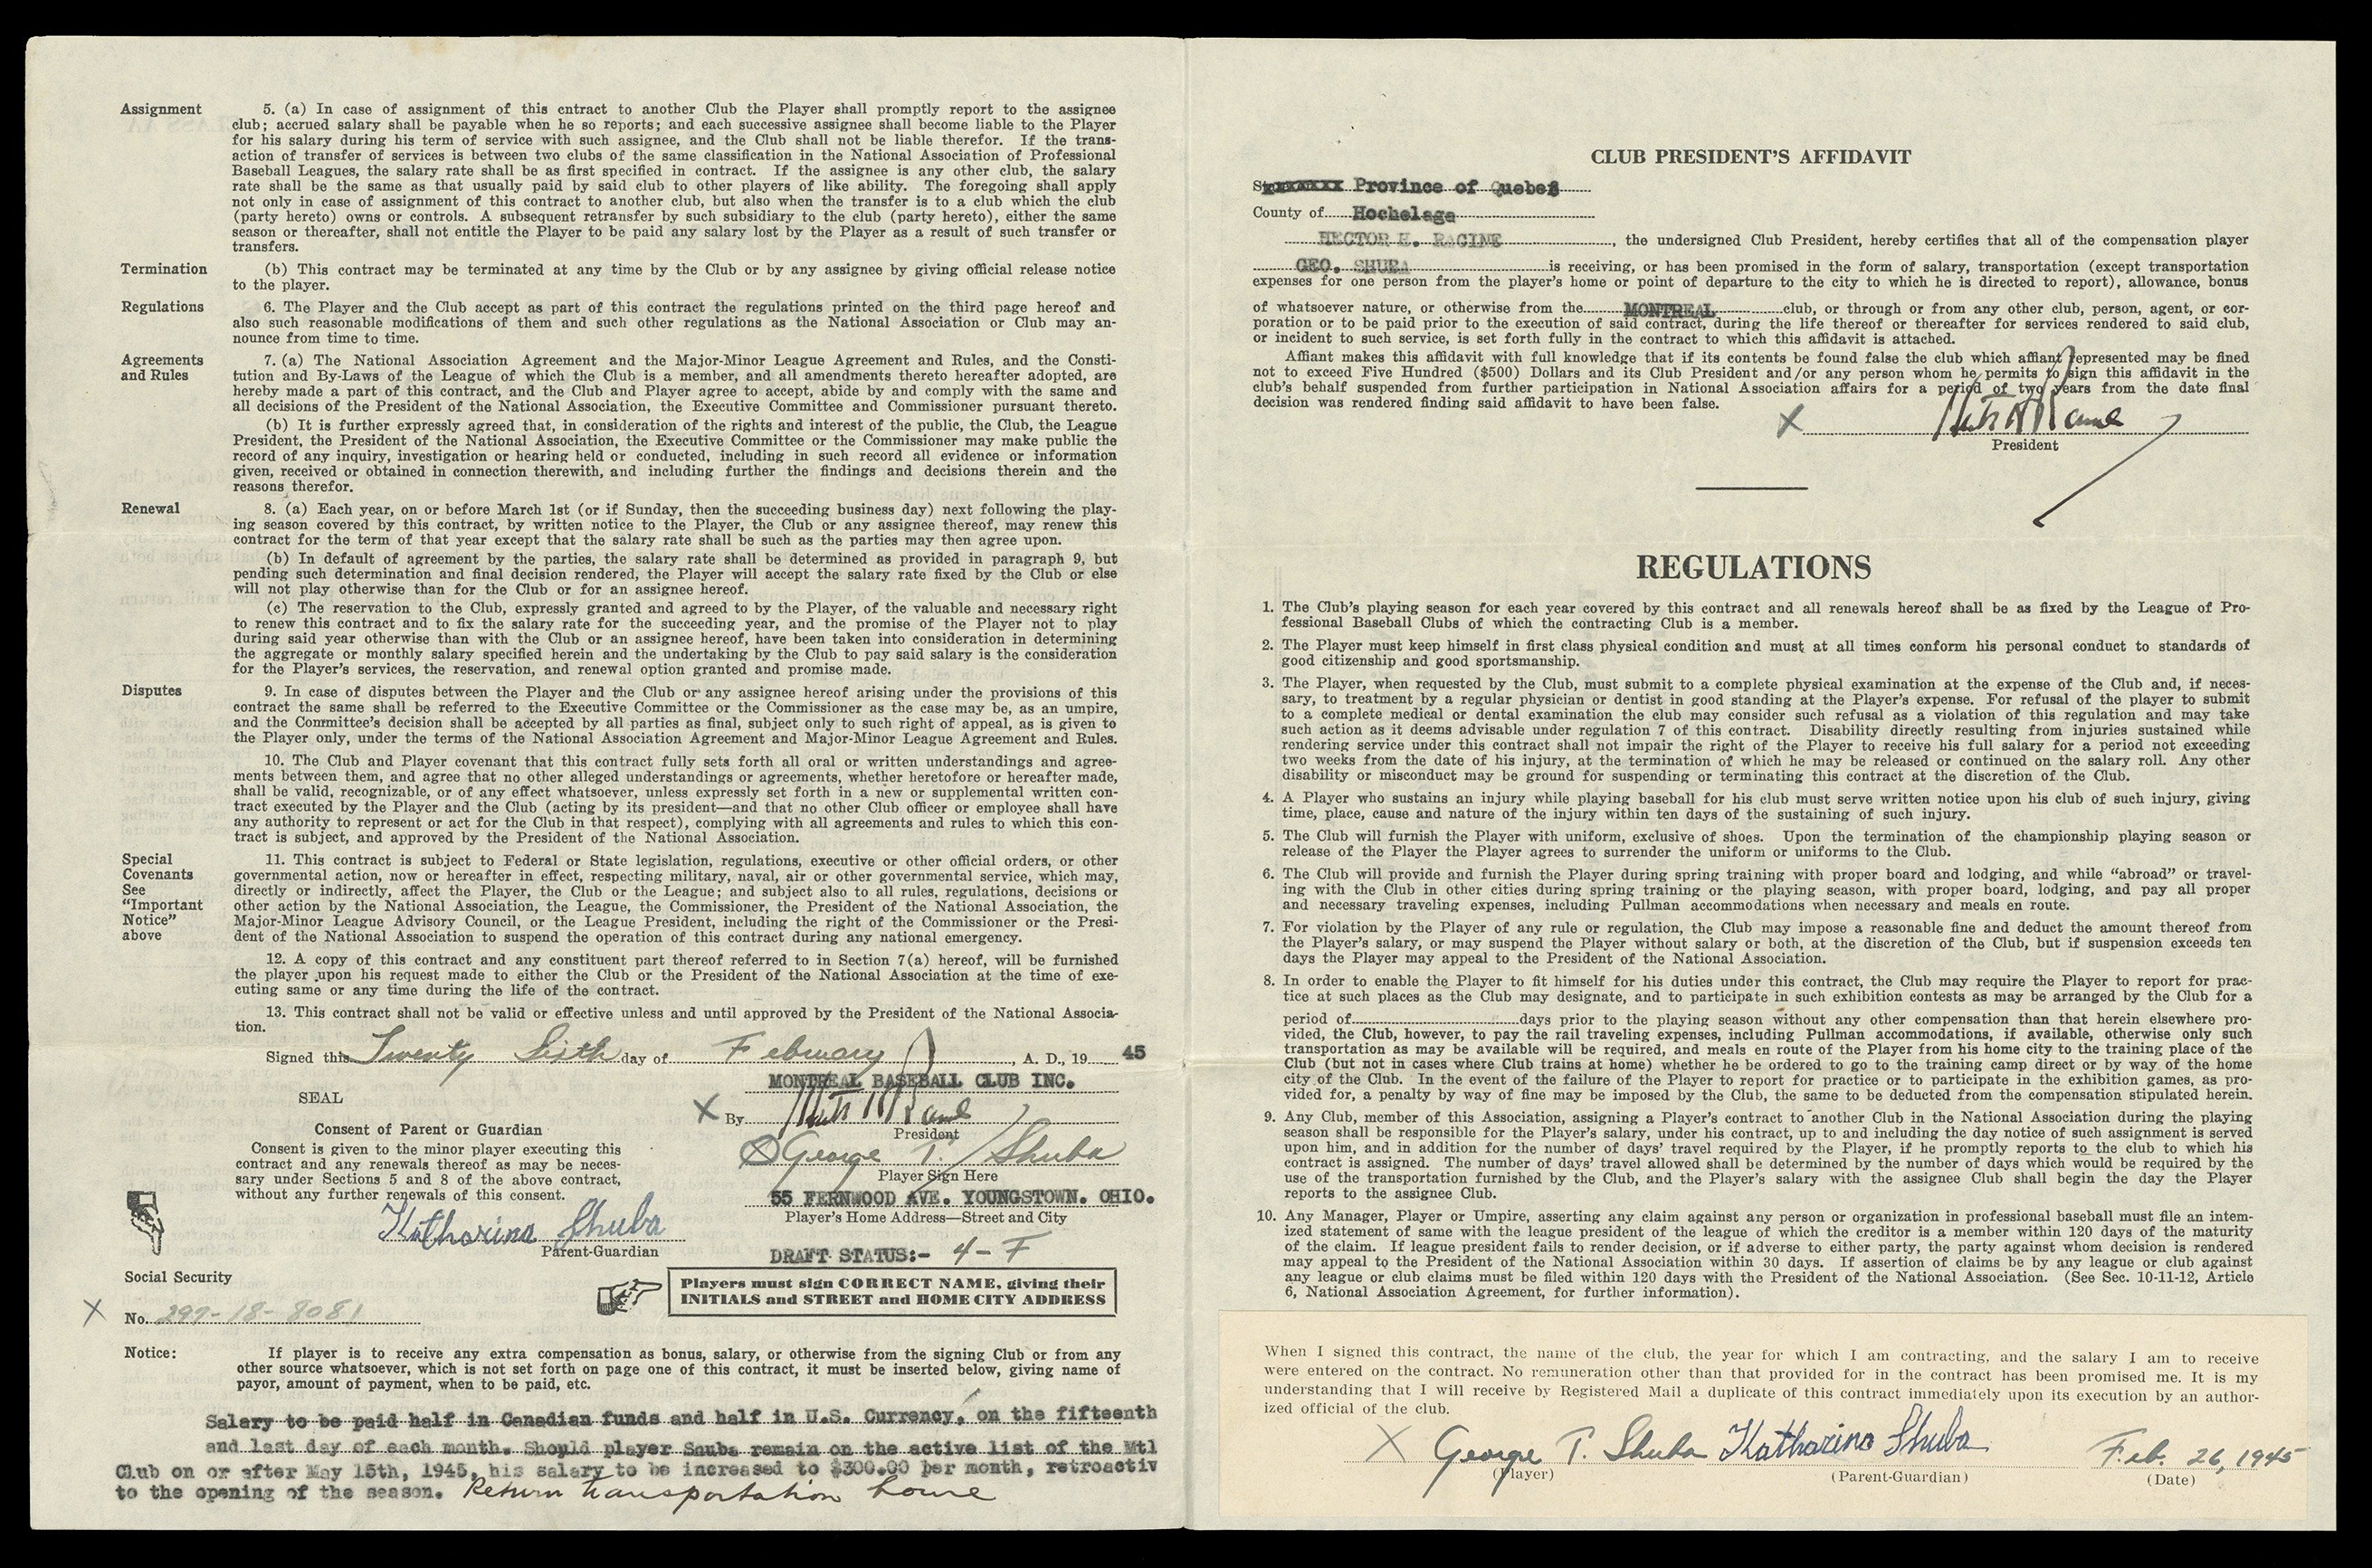 Assignment 5. (a) In case of assignment of this cntract to another Club the Player shall promptly report to the assignee
club; accrued salary shall be payable when he so reports; and each successive assignee shall become liable to the Player
for his salary during his term of service with such assignee, and the Club shall not be liable therefor. If the trans-
action of transfer of services is between two clubs of the same classification in the National Association of Professional
Baseball Leagues, the salary rate shall be as first specified in contract. If the assignee is any other club, the salary
rate shall be the same as that usually paid by said club to other players of like ability. The foregoing shall apply
not only in case of assignment of this contract to another club, but also when the transfer is to a club which the club
(party hereto) owns or controls. A subsequent retransfer by such subsidiary to the club (party hereto), either the same
season or thereafter, shall not entitle the Player to be paid any salary lost by the Player as a result of such transfer or
transfers.
Termination (b) This contract may be terminated at any time by the Club or by any assignee by giving official release notice
to the player.
Regulations 6. The Player and the Club accept as part of this contract the regulations printed on the third page hereof and
also such reasonable modifications of them and such other regulations as the National Association or Club may an-
nounce from time to time.
Agreements 7. (a) The National Association Agreement and the Major-Minor League Agreement and Rules, and the Consti-
and Rules tution and By-Laws of the League of which the Club is a member, and all amendments thereto hereafter adopted, are
hereby made a part of this contract, and the Club and Player agree to accept, abide by and comply with the same and
all decisions of the President of the National Association, the Executive Committee and Commissioner pursuant thereto.
(b) It is further expressly agreed that, in consideration of the rights and interest of the public, the Club, the League
President, the President of the National Association, the Executive Committee or the Commissioner may make public the
record of any inquiry, investigation or hearing held or conducted, including in such record all evidence or information
given, received or obtained in connection therewith, and including further the findings and decisions therein and the
reasons therefor.
Renewal 8. (a) Each year, on or before March 1st (or if Sunday, then the succeeding business day) next following the play-
ing season covered by this contract, by written notice to the Player, the Club or any assignee thereof, may renew this
contract for the term of that year except that the salary rate shall be such as the parties may then agree upon.
(b) In default of agreement by the parties, the salary rate shall be determined as provided in paragraph 9, but
pending such determination and final decision rendered, the Player will accept the salary rate fixed by the Club or else
will not play otherwise than for the Club or for an assignee hereof.
(c) The reservation to the Club, expressly granted and agreed to by the Player, of the valuable and necessary right
to renew this contract and to fix the salary rate for the succeeding year, and the promise of the Player not to play
during said year otherwise than with the Club or an assignee hereof, have been taken into consideration in determining
the aggregate or monthly salary specified herein and the undertaking by the Club to pay said salary is the consideration
for the Player's services, the reservation, and renewal option granted and promise made.
Disputes 9. In case of disputes between the Player and the Club or any assignee hereof arising under the provisions of this
contract the same shall be referred to the Executive Committee or the Commissioner as the case may be, as an umpire,
and the Committee's decision shall be accepted by all parties as final, subject only to such right of appeal, as is given to
the Player only, under the terms of the National Association Agreement and Major-Minor League Agreement and Rules.
10. The Club and Player covenant that this contract fully sets forth all oral or written understandings and agree-
ments between them, and agree that no other alleged understandings or agreements, whether heretofore or hereafter made,
shall be valid, recognizable, or of any effect whatsoever, unless expressly set forth in a new or supplemental written con-
tract executed by the Player and the Club (acting by its president—and that no other Club officer or employee shall have
any authority to represent or act for the Club in that respect), complying with all agreements and rules to which this con-
tract is subject, and approved by the President of the National Association.
Special 11. This contract is subject to Federal or State legislation, regulations, executive or other official orders, or other
Covenants governmental action, now or hereafter in effect, respecting military, naval, air or other governmental service, which may,
See directly or indirectly, affect the Player, the Club or the League; and subject also to all rules, regulations, decisions or
“Important other action by the National Association, the League, the Commissioner, the President of the National Association, the
Notice” Major-Minor League Advisory Council, or the League President, including the right of the Commissioner or the Presi-
above dent of the National Association to suspend the operation of this contract during any national emergency.
12. A copy of this contract and any constituent part thereof referred to in Section 7(a) hereof, will be furnished
the player upon his request made to either the Club or the President of the National Association at the time of exe-
cuting same or any time during the life of the contract.
13. This contract shall not be valid or effective unless and until approved by the President of the National Associa-
tion.
Signed this Twenty Sixth day of February, A. D., 19 45
MONTREAL BASEBALL CLUB INC.
SEAL
X By
President
Consent of Parent or Guardian
Consent is given to the minor player executing this
contract and any renewals thereof as may be neces-
sary under Sections 5 and 8 of the above contract,
without any further renewals of this consent.
Katharina Shuba
Parent-Guardian
X George T. Shuba
Player Sign Here
55 FERNWOOD AVE. YOUNGSTOWN. OHIO.
Player's Home Address—Street and City
DRAFT STATUS:- 4-F
Players must sign CORRECT NAME, giving their
INITIALS and STREET and HOME CITY ADDRESS
Social Security
X No. 297-18-8081
Notice: If player is to receive any extra compensation as bonus, salary, or otherwise from the signing Club or from any
other source whatsoever, which is not set forth on page one of this contract, it must be inserted below, giving name of
payor, amount of payment, when to be paid, etc.
Salary to be paid half in Canadian funds and half in U.S. Currency, on the fifteenth
and last day of each month. Should player Shuba remain on the active list of the Mtl
Club on or after May 15th, 1945, his salary to be increased to $300.00 per month, retroactiv
to the opening of the season. Return transportation home
CLUB PRESIDENT'S AFFIDAVIT
Province of Quebec
County of Hochelaga
HECTOR H. RACINE, the undersigned Club President, hereby certifies that all of the compensation player
GEO. SHUBA is receiving, or has been promised in the form of salary, transportation (except transportation
expenses for one person from the player's home or point of departure to the city to which he is directed to report), allowance, bonus
of whatsoever nature, or otherwise from the MONTREAL club, or through or from any other club, person, agent, or cor-
poration or to be paid prior to the execution of said contract, during the life thereof or thereafter for services rendered to said club,
or incident to such service, is set forth fully in the contract to which this affidavit is attached.
Affiant makes this affidavit with full knowledge that if its contents be found false the club which affiant represented may be fined
not to exceed Five Hundred ($500) Dollars and its Club President and/or any person whom he permits to sign this affidavit in the
club's behalf suspended from further participation in National Association affairs for a period of two years from the date final
decision was rendered finding said affidavit to have been false.
X
President
REGULATIONS
1. The Club's playing season for each year covered by this contract and all renewals hereof shall be as fixed by the League of Pro-
fessional Baseball Clubs of which the contracting Club is a member.
2. The Player must keep himself in first class physical condition and must at all times conform his personal conduct to standards of
good citizenship and good sportsmanship.
3. The Player, when requested by the Club, must submit to a complete physical examination at the expense of the Club and, if neces-
sary, to treatment by a regular physician or dentist in good standing at the Player's expense. For refusal of the player to submit
to a complete medical or dental examination the club may consider such refusal as a violation of this regulation and may take
such action as it deems advisable under regulation 7 of this contract. Disability directly resulting from injuries sustained while
rendering service under this contract shall not impair the right of the Player to receive his full salary for a period not exceeding
two weeks from the date of his injury, at the termination of which he may be released or continued on the salary roll. Any other
disability or misconduct may be ground for suspending or terminating this contract at the discretion of the Club.
4. A Player who sustains an injury while playing baseball for his club must serve written notice upon his club of such injury, giving
time, place, cause and nature of the injury within ten days of the sustaining of such injury.
5. The Club will furnish the Player with uniform, exclusive of shoes. Upon the termination of the championship playing season or
release of the Player the Player agrees to surrender the uniform or uniforms to the Club.
6. The Club will provide and furnish the Player during spring training with proper board and lodging, and while “abroad” or travel-
ing with the Club in other cities during spring training or the playing season, with proper board, lodging, and pay all proper
and necessary traveling expenses, including Pullman accommodations when necessary and meals en route.
7. For violation by the Player of any rule or regulation, the Club may impose a reasonable fine and deduct the amount thereof from
the Player's salary, or may suspend the Player without salary or both, at the discretion of the Club, but if suspension exceeds ten
days the Player may appeal to the President of the National Association.
8. In order to enable the Player to fit himself for his duties under this contract, the Club may require the Player to report for prac-
tice at such places as the Club may designate, and to participate in such exhibition contests as may be arranged by the Club for a
period of days prior to the playing season without any other compensation than that herein elsewhere pro-
vided, the Club, however, to pay the rail traveling expenses, including Pullman accommodations, if available, otherwise only such
transportation as may be available will be required, and meals en route of the Player from his home city to the training place of the
Club (but not in cases where Club trains at home) whether he be ordered to go to the training camp direct or by way of the home
city of the Club. In the event of the failure of the Player to report for practice or to participate in the exhibition games, as pro-
vided for, a penalty by way of fine may be imposed by the Club, the same to be deducted from the compensation stipulated herein.
9. Any Club, member of this Association, assigning a Player's contract to another Club in the National Association during the playing
season shall be responsible for the Player's salary, under his contract, up to and including the day notice of such assignment is served
upon him, and in addition for the number of days' travel required by the Player, if he promptly reports to the club to which his
contract is assigned. The number of days' travel allowed shall be determined by the number of days which would be required by the
use of the transportation furnished by the Club, and the Player's salary with the assignee Club shall begin the day the Player
reports to the assignee Club.
10. Any Manager, Player or Umpire, asserting any claim against any person or organization in professional baseball must file an intem-
ized statement of same with the league president of the league of which the creditor is a member within 120 days of the maturity
of the claim. If league president fails to render decision, or if adverse to either party, the party against whom decision is rendered
may appeal to the President of the National Association within 30 days. If assertion of claims be by any league or club against
any league or club claims must be filed within 120 days with the President of the National Association. (See Sec. 10-11-12, Article
6, National Association Agreement, for further information).
When I signed this contract, the name of the club, the year for which I am contracting, and the salary I am to receive
were entered on the contract. No remuneration other than that provided for in the contract has been promised me. It is my
understanding that I will receive by Registered Mail a duplicate of this contract immediately upon its execution by an author-
ized official of the club.
X George T. Shuba Katharina Shuba Feb. 26, 1945
(Player) (Parent-Guardian) (Date)